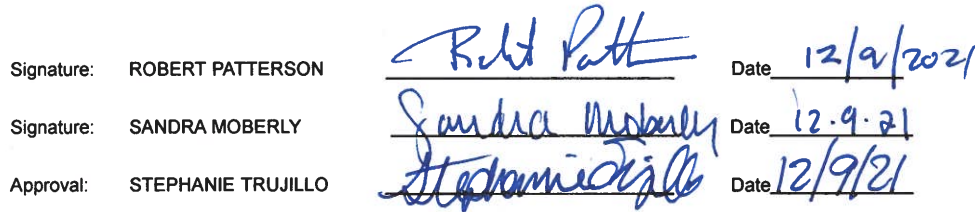 Signature: ROBERT PATTERSON Robt Patt Date 12/9/2021
Signature: SANDRA MOBERLY Sandra Moberly Date 12.9.21
Approval: STEPHANIE TRUJILLO Stephanie Trujillo Date 12/9/21